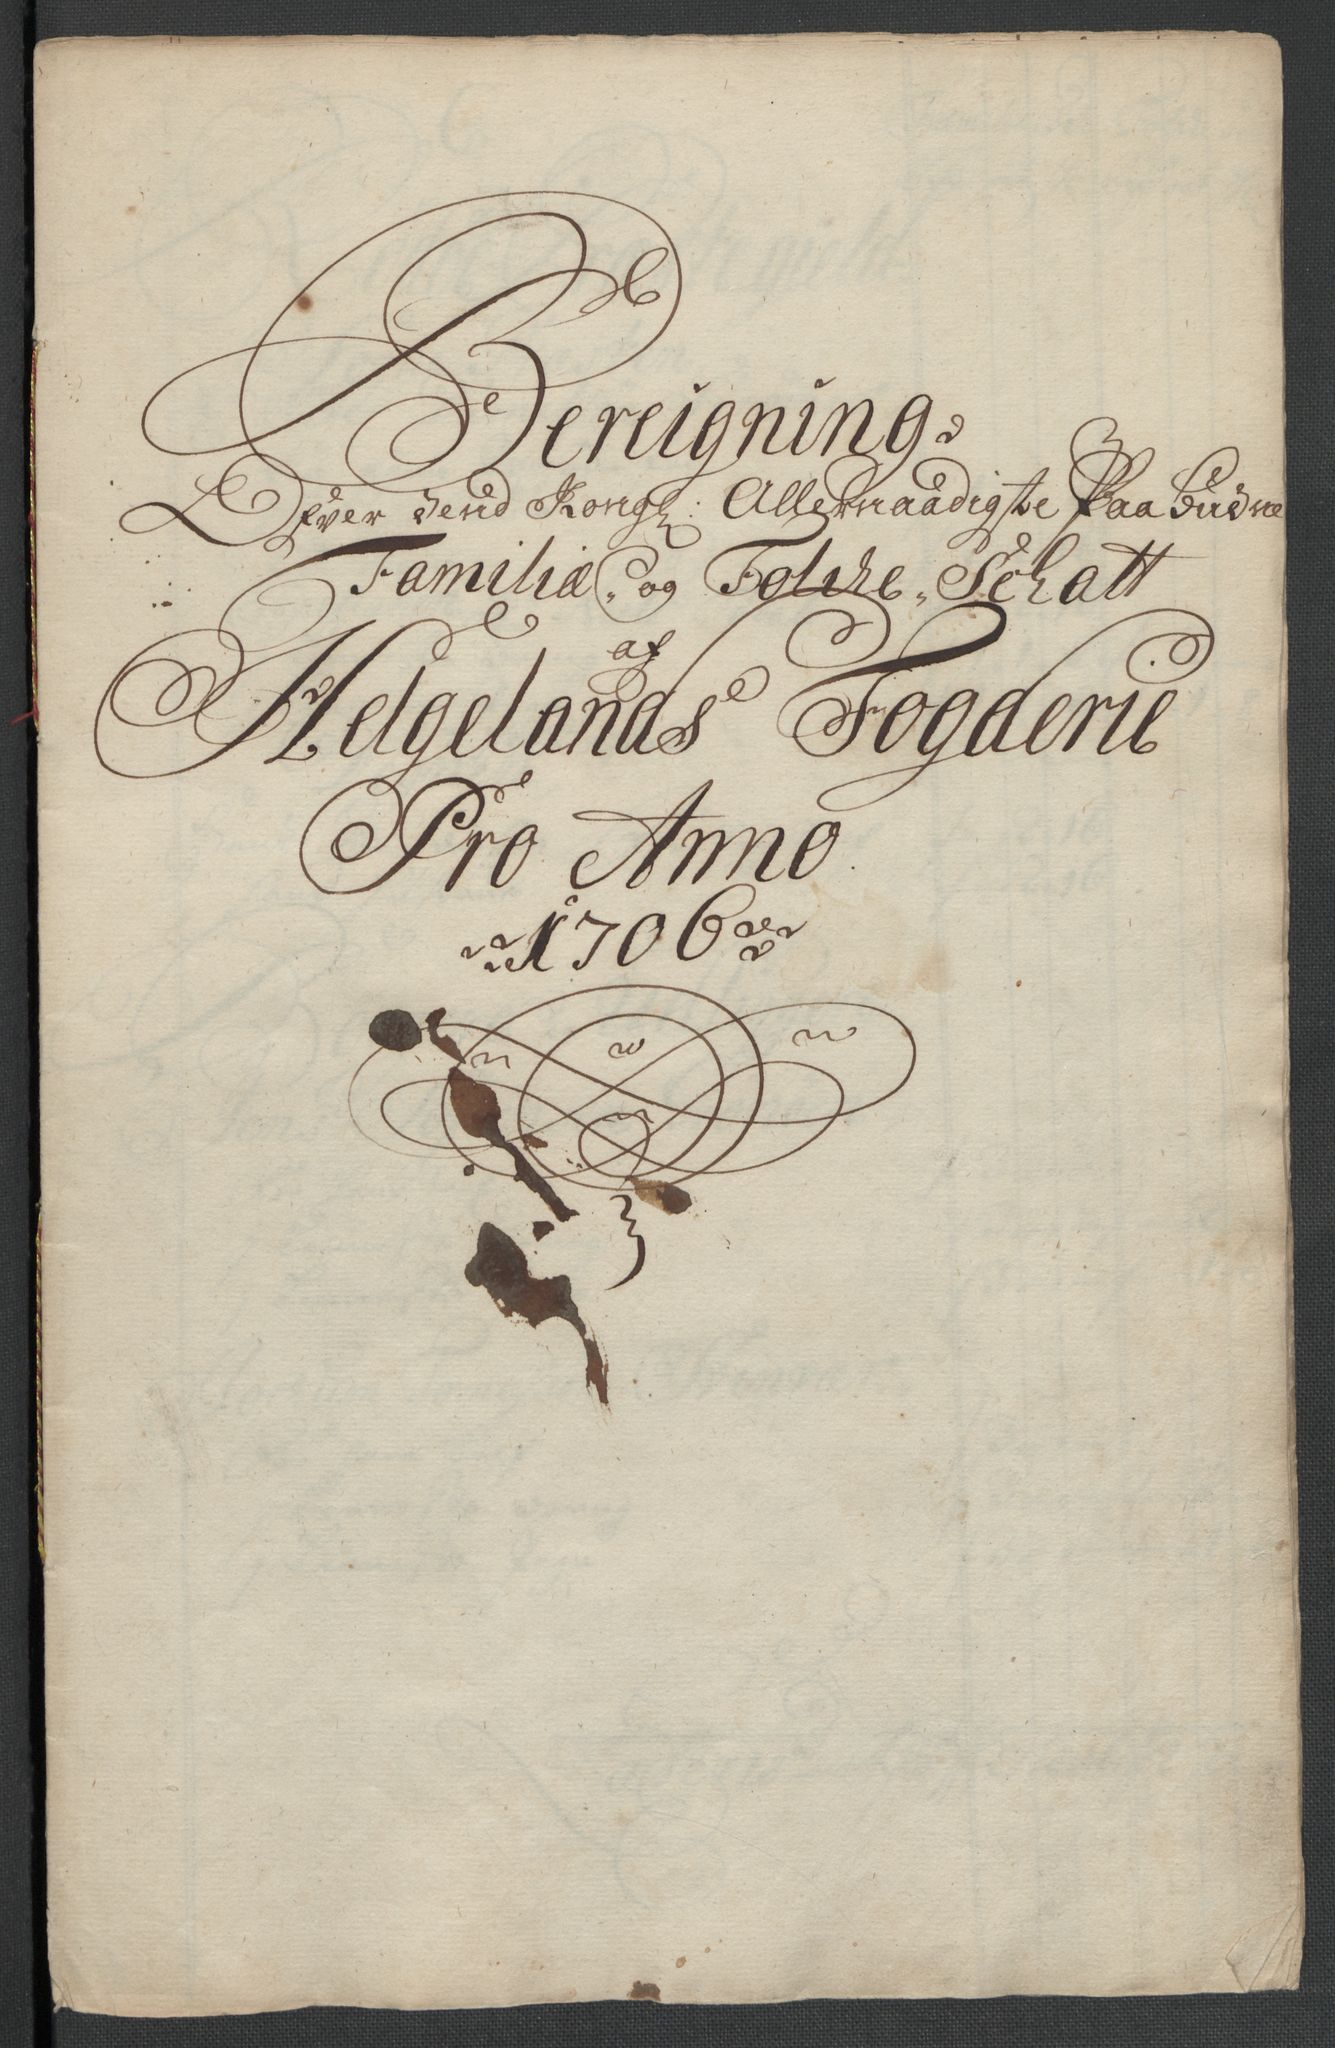 Bereigning
Ofver dend Kongl: Allernaadigste Paa budne
Familiæ, og Folche, Schatt
af
Helgelands Fogderie
Pro Anno
1706